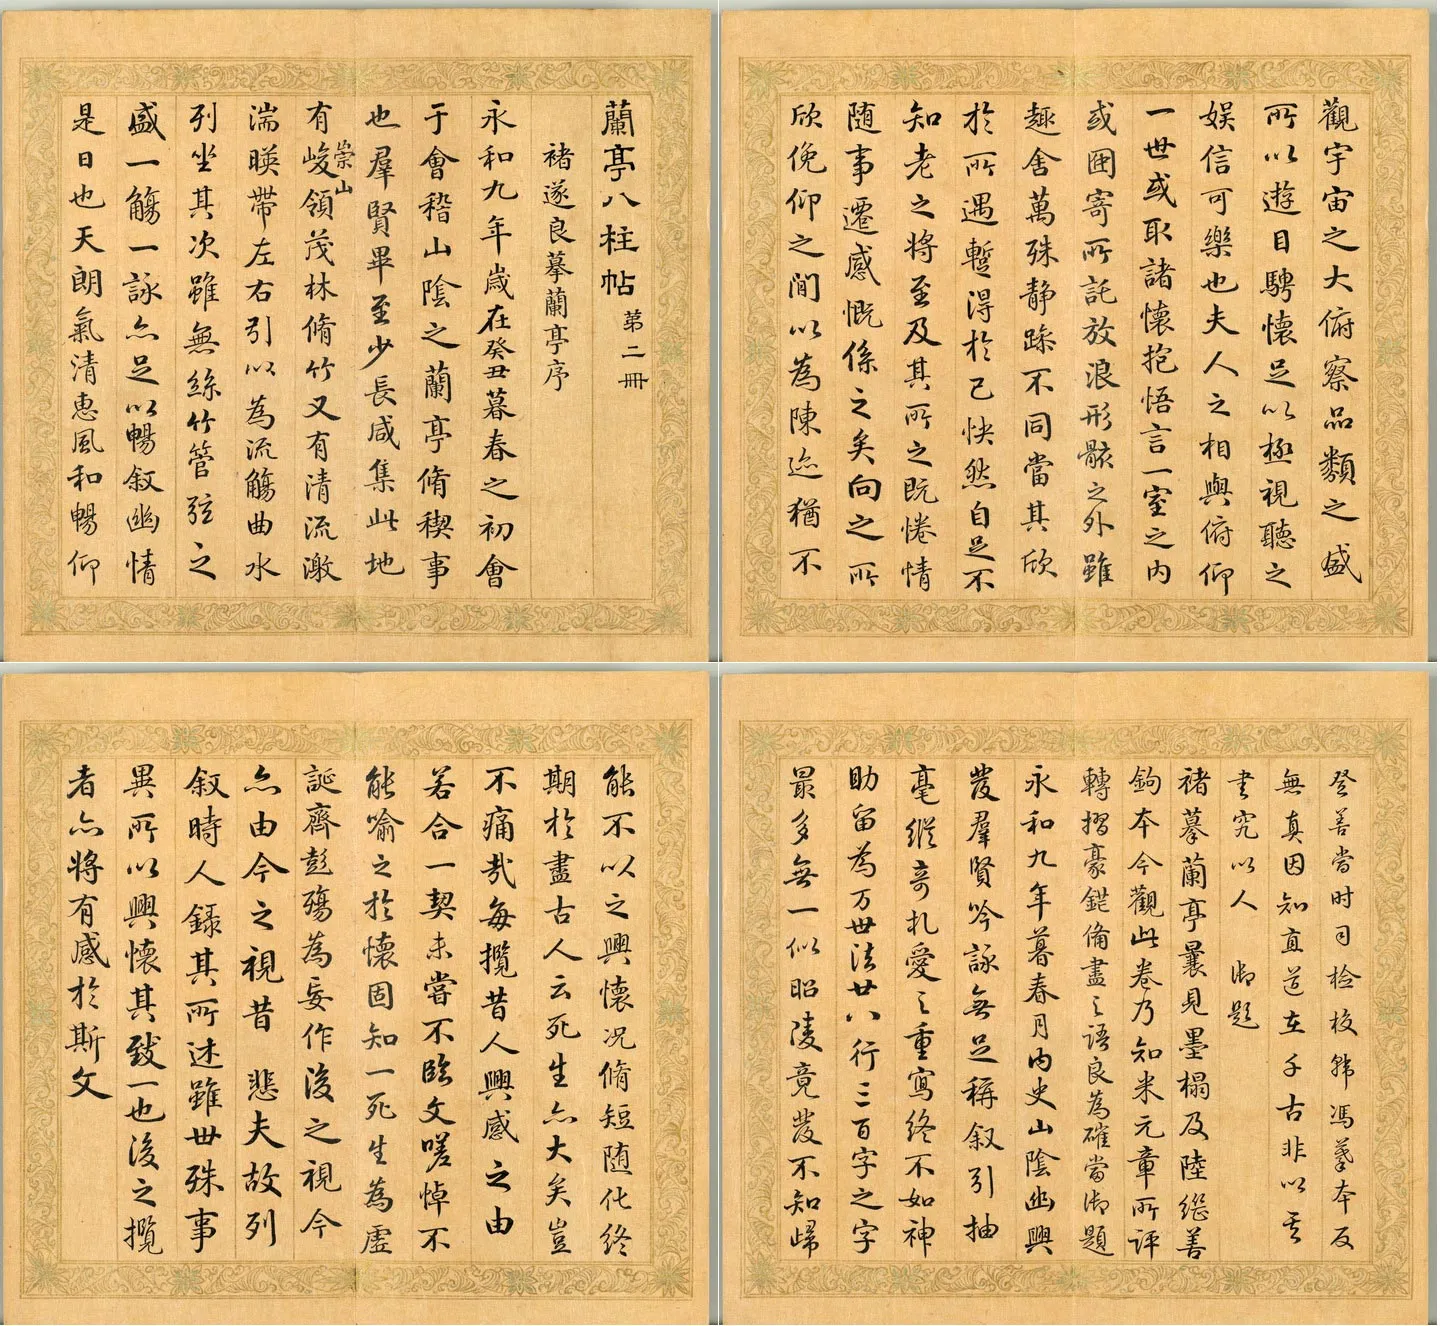 蘭亭八柱帖 第二冊
褚遂良摹蘭亭序
永和九年歲在癸丑暮春之初會
于會稽山陰之蘭亭脩稧事
也羣賢畢至少長咸集此地
有崇山峻領茂林脩竹又有清流激
湍暎帶左右引以為流觴曲水
列坐其次雖無絲竹管弦之
盛一觴一詠亦足以暢叙幽情
是日也天朗氣清惠風和暢仰
觀宇宙之大俯察品類之盛
所以遊目騁懷足以極視聽之
娛信可樂也夫人之相與俯仰
一世或取諸懷抱悟言一室之內
或因寄所託放浪形骸之外雖
趣舍萬殊静躁不同當其欣
於所遇蹔得於己怏然自足不
知老之將至及其所之既惓情
随事遷感慨係之矣向之所
欣俛仰之閒以為陳迹猶不
能不以之興懷況脩短随化終
期於盡古人云死生亦大矣豈
不痛哉每攬昔人興感之由
若合一契未嘗不臨文嗟悼不
能喻之於懷固知一死生為虛
誕齊彭殤為妄作後之視今
亦由今之視昔悲夫故列
叙時人錄其所述雖世殊事
異所以興懷其致一也後之攬
者亦將有感於斯文
登善當时司检校韩馮摹本反
無真因知直道在千古非以書
書究以人 御題
褚摹蘭亭曩見墨榻及陸繼善
鉤本今觀此卷乃知米元章所評
轉摺豪鋩備盡之語良為確當御題
永和九年暮春月內史山陰幽興
發羣賢吟詠無足稱叙引抽
毫縱奇札愛之重寫終不如神
助留為万世法廿八行三百字之字
最多無一似昭陵竟發不知歸